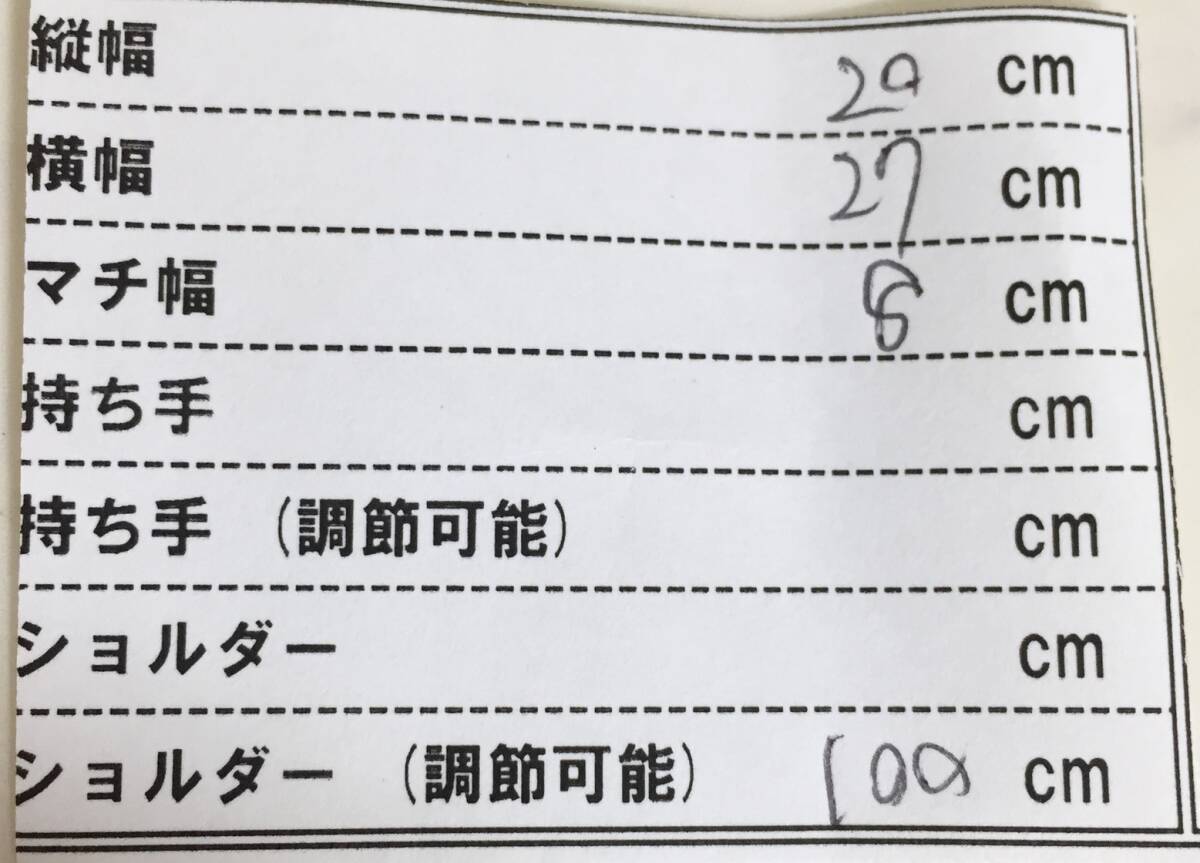 縦幅 20 cm
横幅 27 cm
マチ幅 8 cm
持ち手 cm
持ち手 (調節可能) cm
ショルダー cm
ショルダー (調節可能) 100 cm